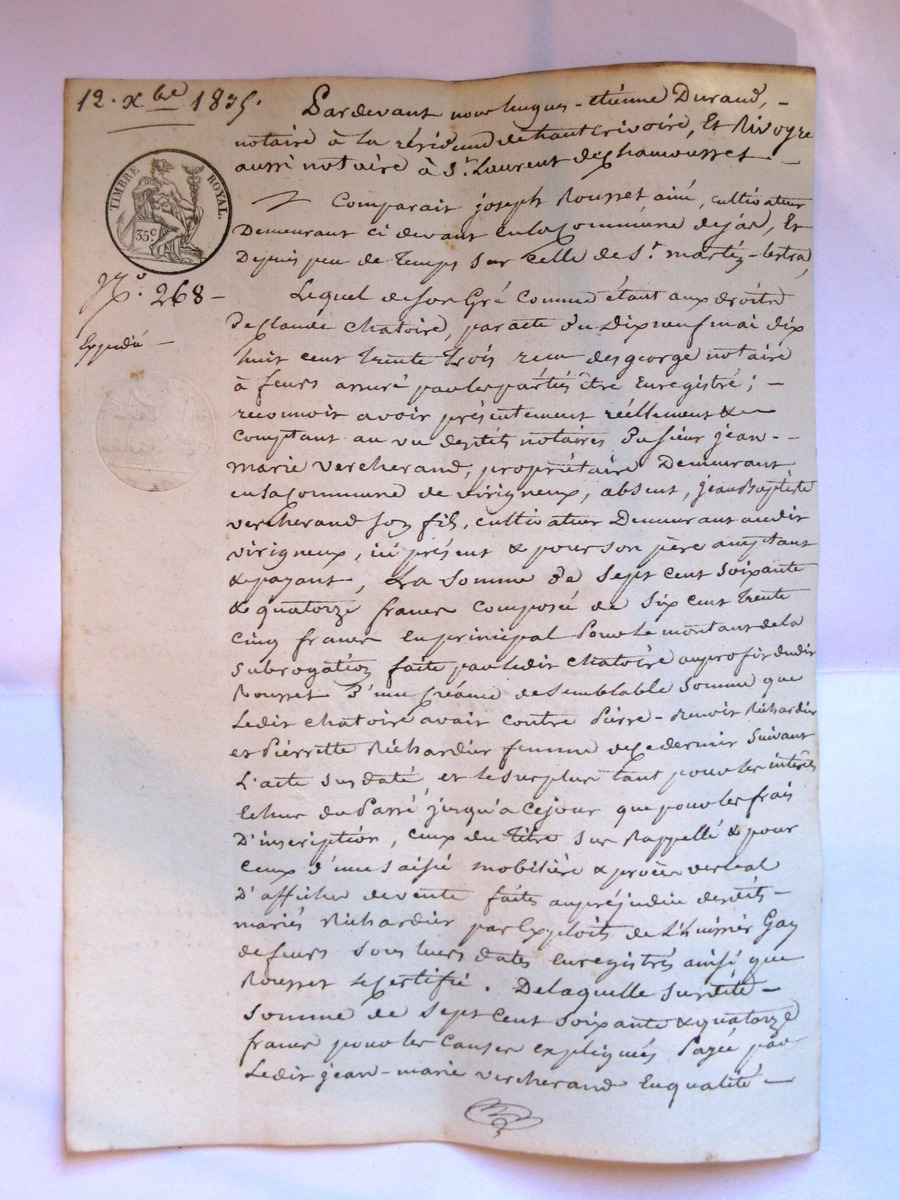 12. xbre 1835.
TIMBRE ROYAL.
35c
No. 268 -
Expédié -
Pardevant nous hugues - étienne Durand, -
notaire à la résidence de hauterivoire, Et Rivoyre
aussi notaire à St. Laurent de Chamousset -
Comparait joseph Rousset ainé, cultivateur
Demeurant ci devant en la Commune de jas, Et
Depuis peu de temps sur celle de St. martin - lestra,
Lequel de son Gré Comme étant aux droits
de Claude Chatoire, par acte du Dix neuf mai dix
huit cent trente trois recu desgeorge notaire
à feurs assuré par les parties être Enregistré ; -
reconnoit avoir présentement réellement &
Comptant au vu desdits notaires Du sieur jean -
marie vercherand, propriétaire Demeurant
en la Commune de virigneux, absent, jean Baptiste
vercherand son fils, cultivateur Demeurant audit
virigneux, ici présent & pour son père acceptant
& payant, La somme de sept cent soixante
& quatorze francs Composée de six cent trente
Cinq francs En principal Pour le montant de la
subrogation faite par ledit Chatoire au profit dudit
Rousset D'une Créance de semblable somme que
Ledit Chatoire avait contre Pierre - Benoit Richardier
et Pierrette Richardier femme de ce dernier suivant
L'acte sus daté, et le surplus tant pour les intérêts
Echus du Passé jusqu'a ce jour que pour les frais
D'inscription, ceux du titre sus Rappellé & pour
ceux d'une saisie mobilière & procès verbal
D'affiches de vente faits au préjudice desdits -
mariés Richardier par Exploits de L'huissier Gay
de feurs sous leurs dates Enregistrés ainsi que
Rousset le Certifie. De laquelle susdite -
somme de sept cent soixante & quatorze
francs pour les causes expliquées Payée par
Ledit jean - marie vercherand En qualité -